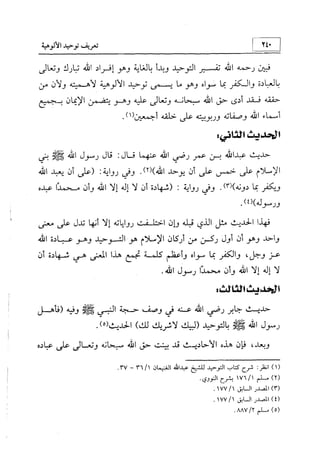 ٢٤٠
تعريف توحيد الألوهية
فبين رحمه الله تفسير التوحيد وبدأ بالغاية وهو إفراد الله تبارك وتعالى
بالعبادة والكفر بما سواه وهو ما يسمى توحيد الألوهية لأهميته ولأن من
حققه فقد أدى حق الله سبحانه وتعالى عليه وهو يتضمن الإيمان بجميع
أسماء الله وصفاته وربوبيته على خلقه أجمعين(١).
الحديث الثاني:
حديث عبدالله بن عمر رضي الله عنهما قال: قال رسول الله ﷺ بني
الإسلام على خمس على أن يوحد الله)(٢). وفي رواية: (على أن يعبد الله
ويكفر بما دونه)(٣). وفي رواية : (شهادة أن لا إله إلا الله وأن محمدًا عبده
ورسوله)(٤).
فهذا الحديث مثل الذي قبله وإن اختلفت رواياته إلا أنها تدل على معنى
واحد وهو أن أول ركن من أركان الإسلام هو التوحيد وهو عبادة الله
عز وجل، والكفر بما سواه وأعظم كلمة تجمع هذا المعنى هي شهادة أن
لا إله إلا الله وأن محمدًا رسول الله.
الحديث الثالث:
حديث جابر رضي الله عنه في وصف حجة النبي ﷺ وفيه (فأهل
رسول الله ﷺ بالتوحيد (لبيك لاشريك لك) الحديث(٥).
وبعد، فإن هذه الأحاديث قد بينت حق الله سبحانه وتعالى على عباده
(١) انظر: شرح كتاب التوحيد للشيخ عبدالله الغنيمان ٣٦/١ - ٣٧.
(٢) مسلم ١٧٦/١ بشرح النووي.
(٣) المصدر السابق ١٧٧/١.
(٤) المصدر السابق ١٧٧/١.
(٥) مسلم ٨٨٧/٢.